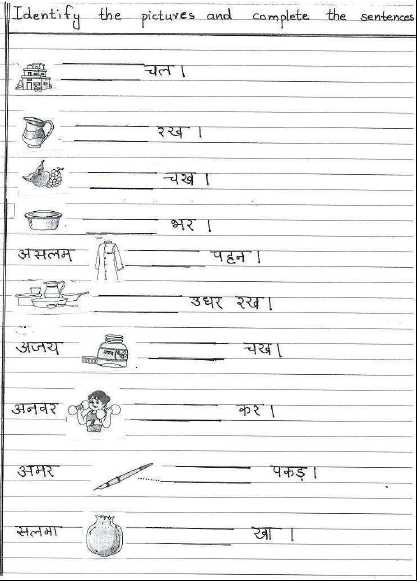 Identify the pictures and complete the sentences
चल ।
रख ।
चख ।
भर ।
असलम पहन ।
उधर रख ।
अजय चख ।
अनवर कर ।
अमर पकड़ ।
सलमा खा ।